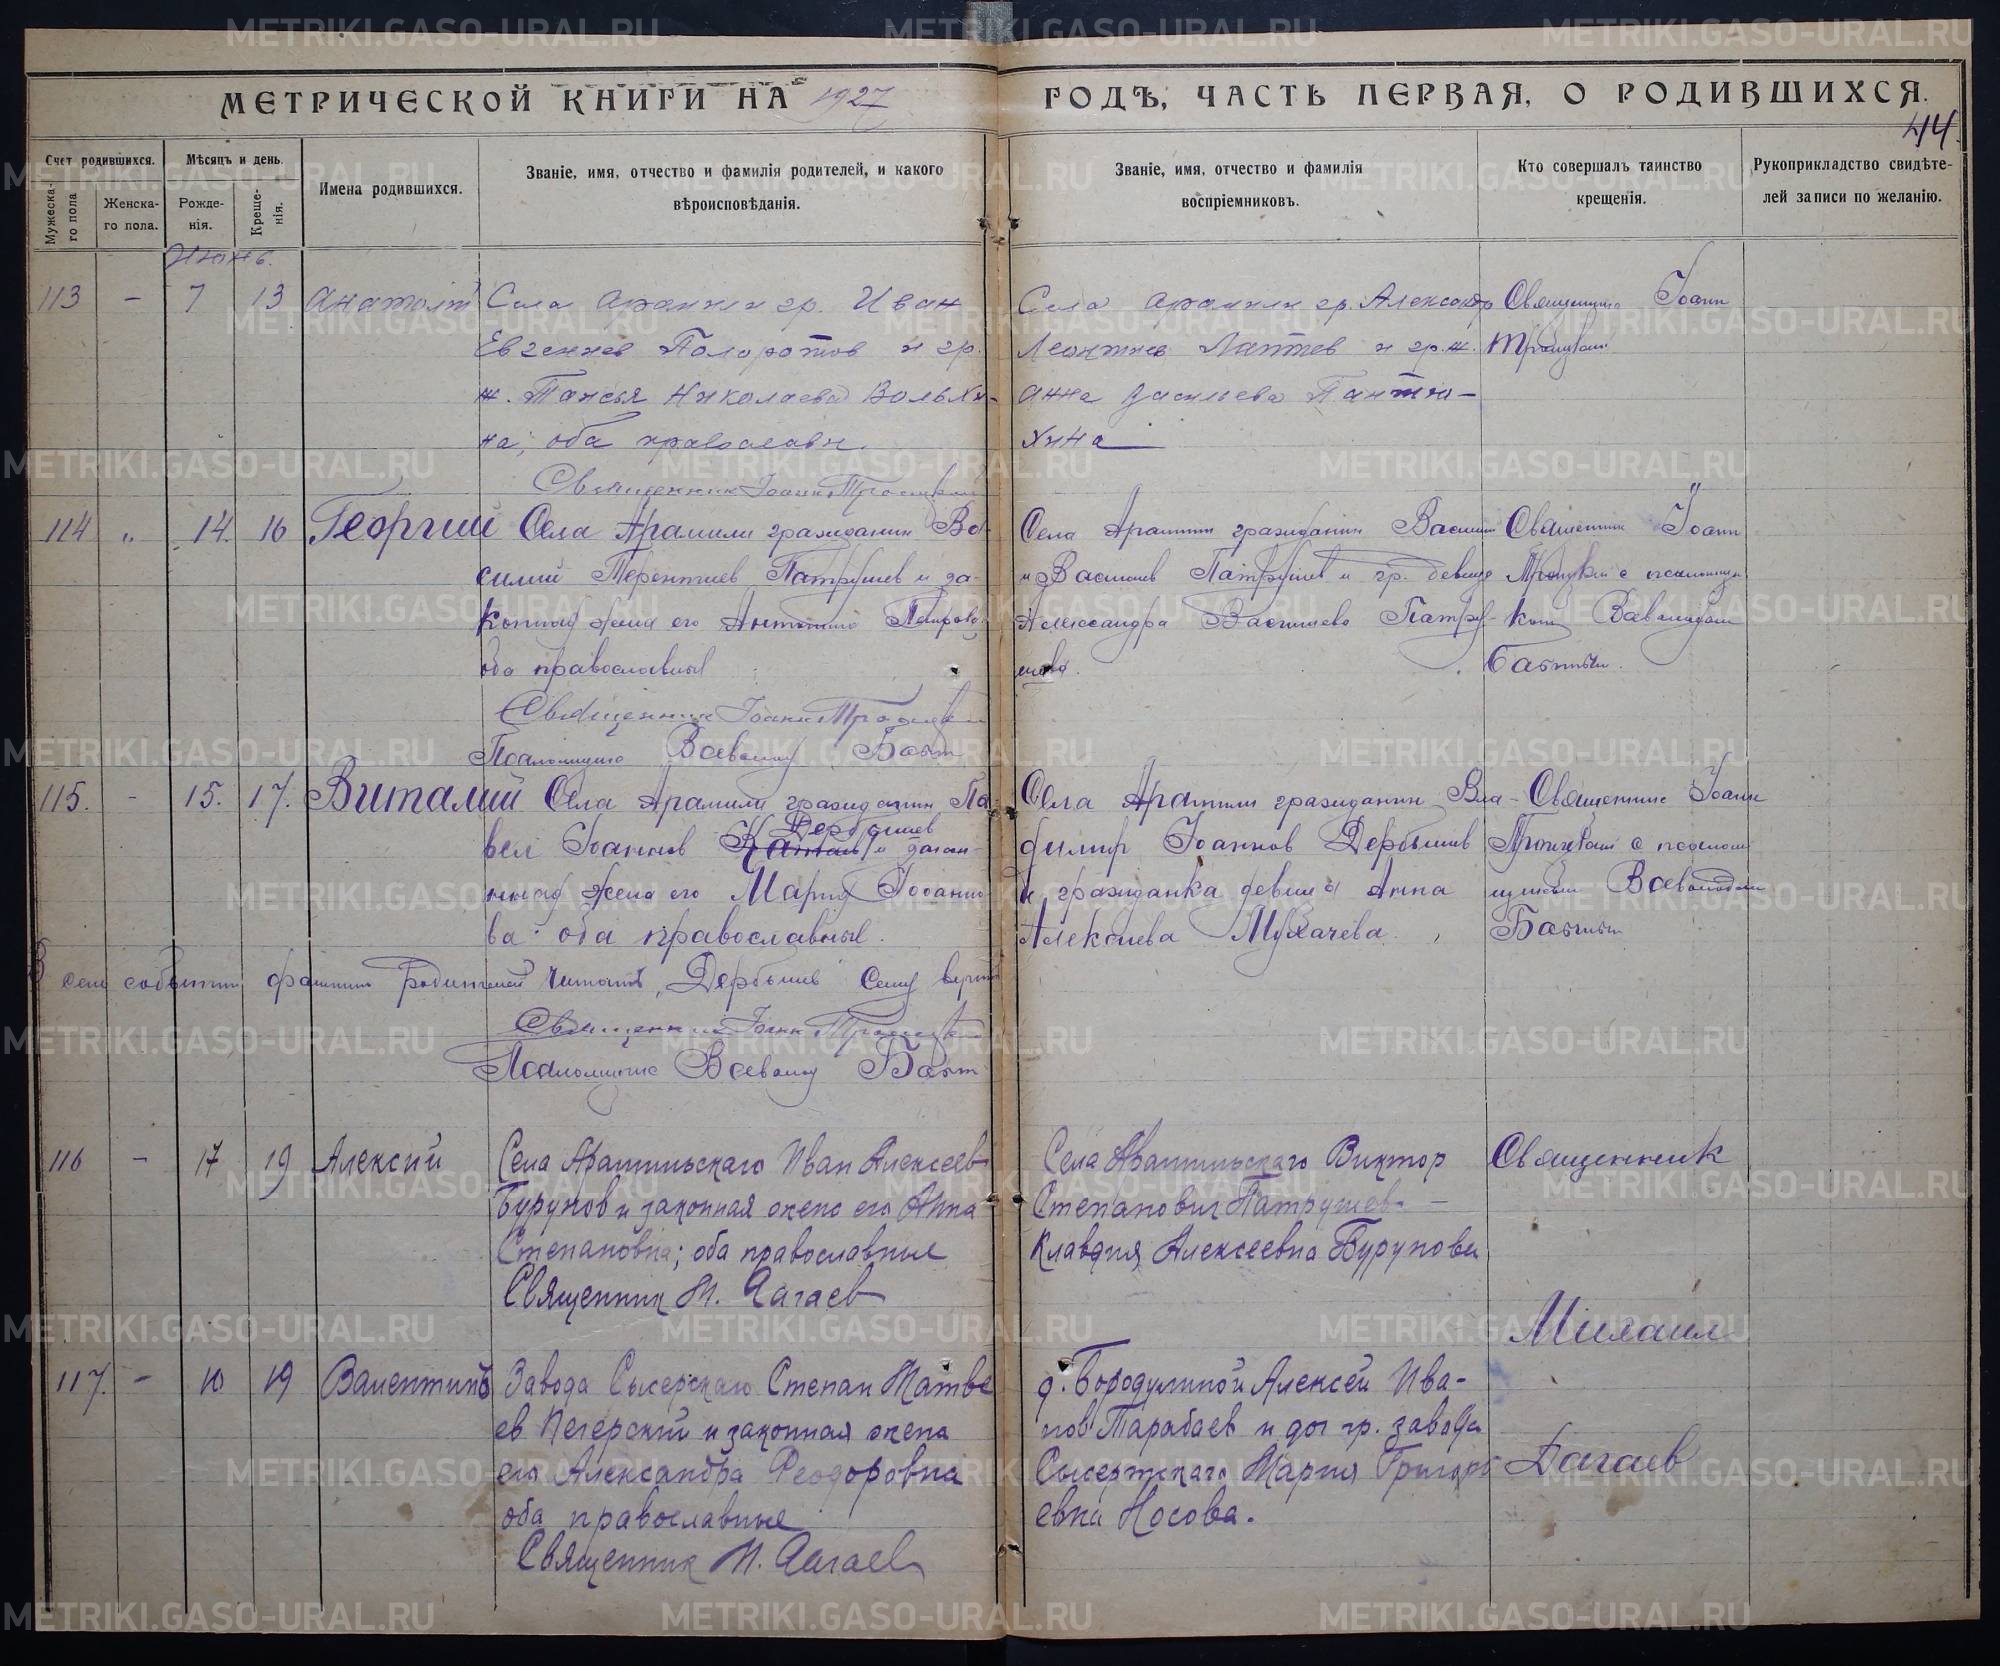 МЕТРИЧЕСКОЙ КНИГИ НА 1927
ГОДѢ, ЧАСТЬ ПЕРВАЯ, О РОДИВШИХСЯ.
44
Счет родившихся.
Мѣсяцъ и день.
Имена родившихся.
Званіе, имя, отчество и фамилія родителей, и какого
вѣроисповѣданія.
Мужеска-
го пола
Женска-
го пола.
Рожде-
нія.
Креще-
нія.
Званіе, имя, отчество и фамилія
воспріемниковъ.
Кто совершалъ таинство
крещенія.
Рукоприкладство свидѣте-
лей записи по желанію.
Июнь.
113 - 7 13 Анатолій Села Арамили гр. Иван
Евгениев Полоротов и гр.
ж. Таисья Николаева Вольхи-
на; оба православн.
Священник Іоанн Троицкий
Села Арамили гр. Александр
Леонтиев Лаптев и гр. ж.
Анна Васильева Пантю-
хина
Священник Іоанн
Троицкий
114 „ 14. 16 Георгий Села Арамили гражданин Ва-
силий Терентиев Патрушев и за-
конная жена его Антонина Петрова
оба православные
Священник Іоанн Троицкий
Псаломщик
Села Арамили гражданин Василий
Васильев Патрушев и гр. девица
Александра Васильева Патру-
шева.
Священник Іоанн
Троицкий с псаломщи-
ком Всеволодом
115. - 15. 17. Виталий Села Арамили гражданин Па-
вел Іоаннов Дербышев и закон-
ная жена его Мария Іоанно-
ва; оба православные.
В сем событии фамилию родителей читать „Дербышев" Сему верить
Священник Іоанн Троицкий
Псаломщик
Села Арамили гражданин Вла-
димир Іоаннов Дербышев
и гражданка девица Анна
Алексиева Мухачева.
Священник Іоанн
Троицкий с псалом-
щиком Всеволодом
116 - 17 19 Алексий Села Арамильскаго Иван Алексеев
Бурунов и законная жена его Анна
Степановна; оба православные
Священник М. Дагаев
Села Арамильскаго Виктор
Степанович Патрушев
Клавдия Алексеевна Бурунова
Священник
Михаил
Дагаев
117. - 10 19 Валентинъ Завода Сысерскаго Степан Матве
ев Печерский и законная жена
его Александра Феодоровна
оба православные
Священник М. Дагаев
д. Бородулиной Алексей Ива-
нов Тарабаев и доч гр. завода
Сысертскаго Мария Григорь
евна Носова.
METRIKI.GASO-URAL.RU